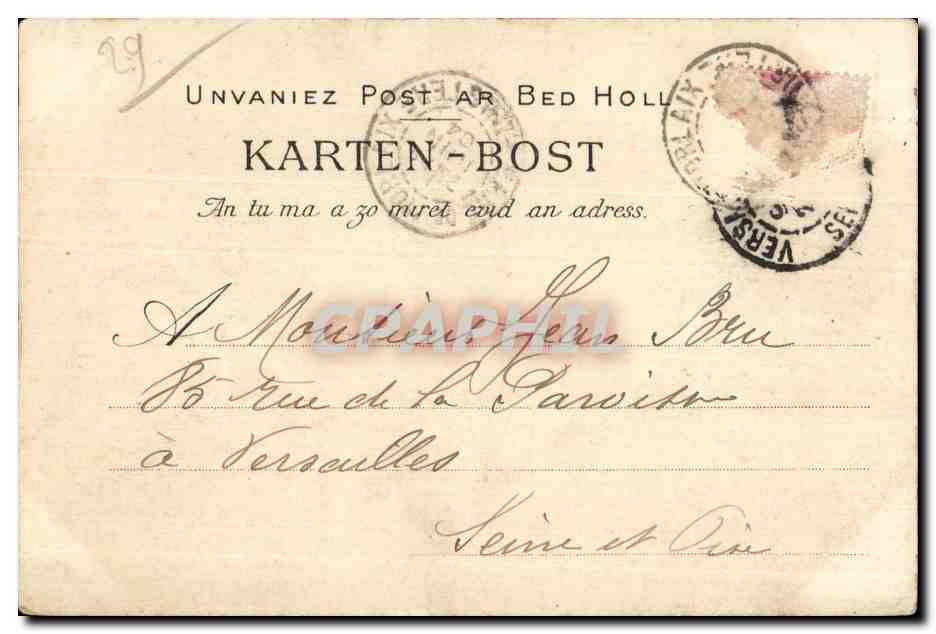 29
UNVANIEZ POST AR BED HOLL
KARTEN-BOST
An tu ma a zo miret evid an adress.
MORLAIX FINISTERE
04
VERS
SEI
CPAPHIL
A Monsieur Jean Bru
85 rue de la Paroisse
à Versailles
Seine et Oise